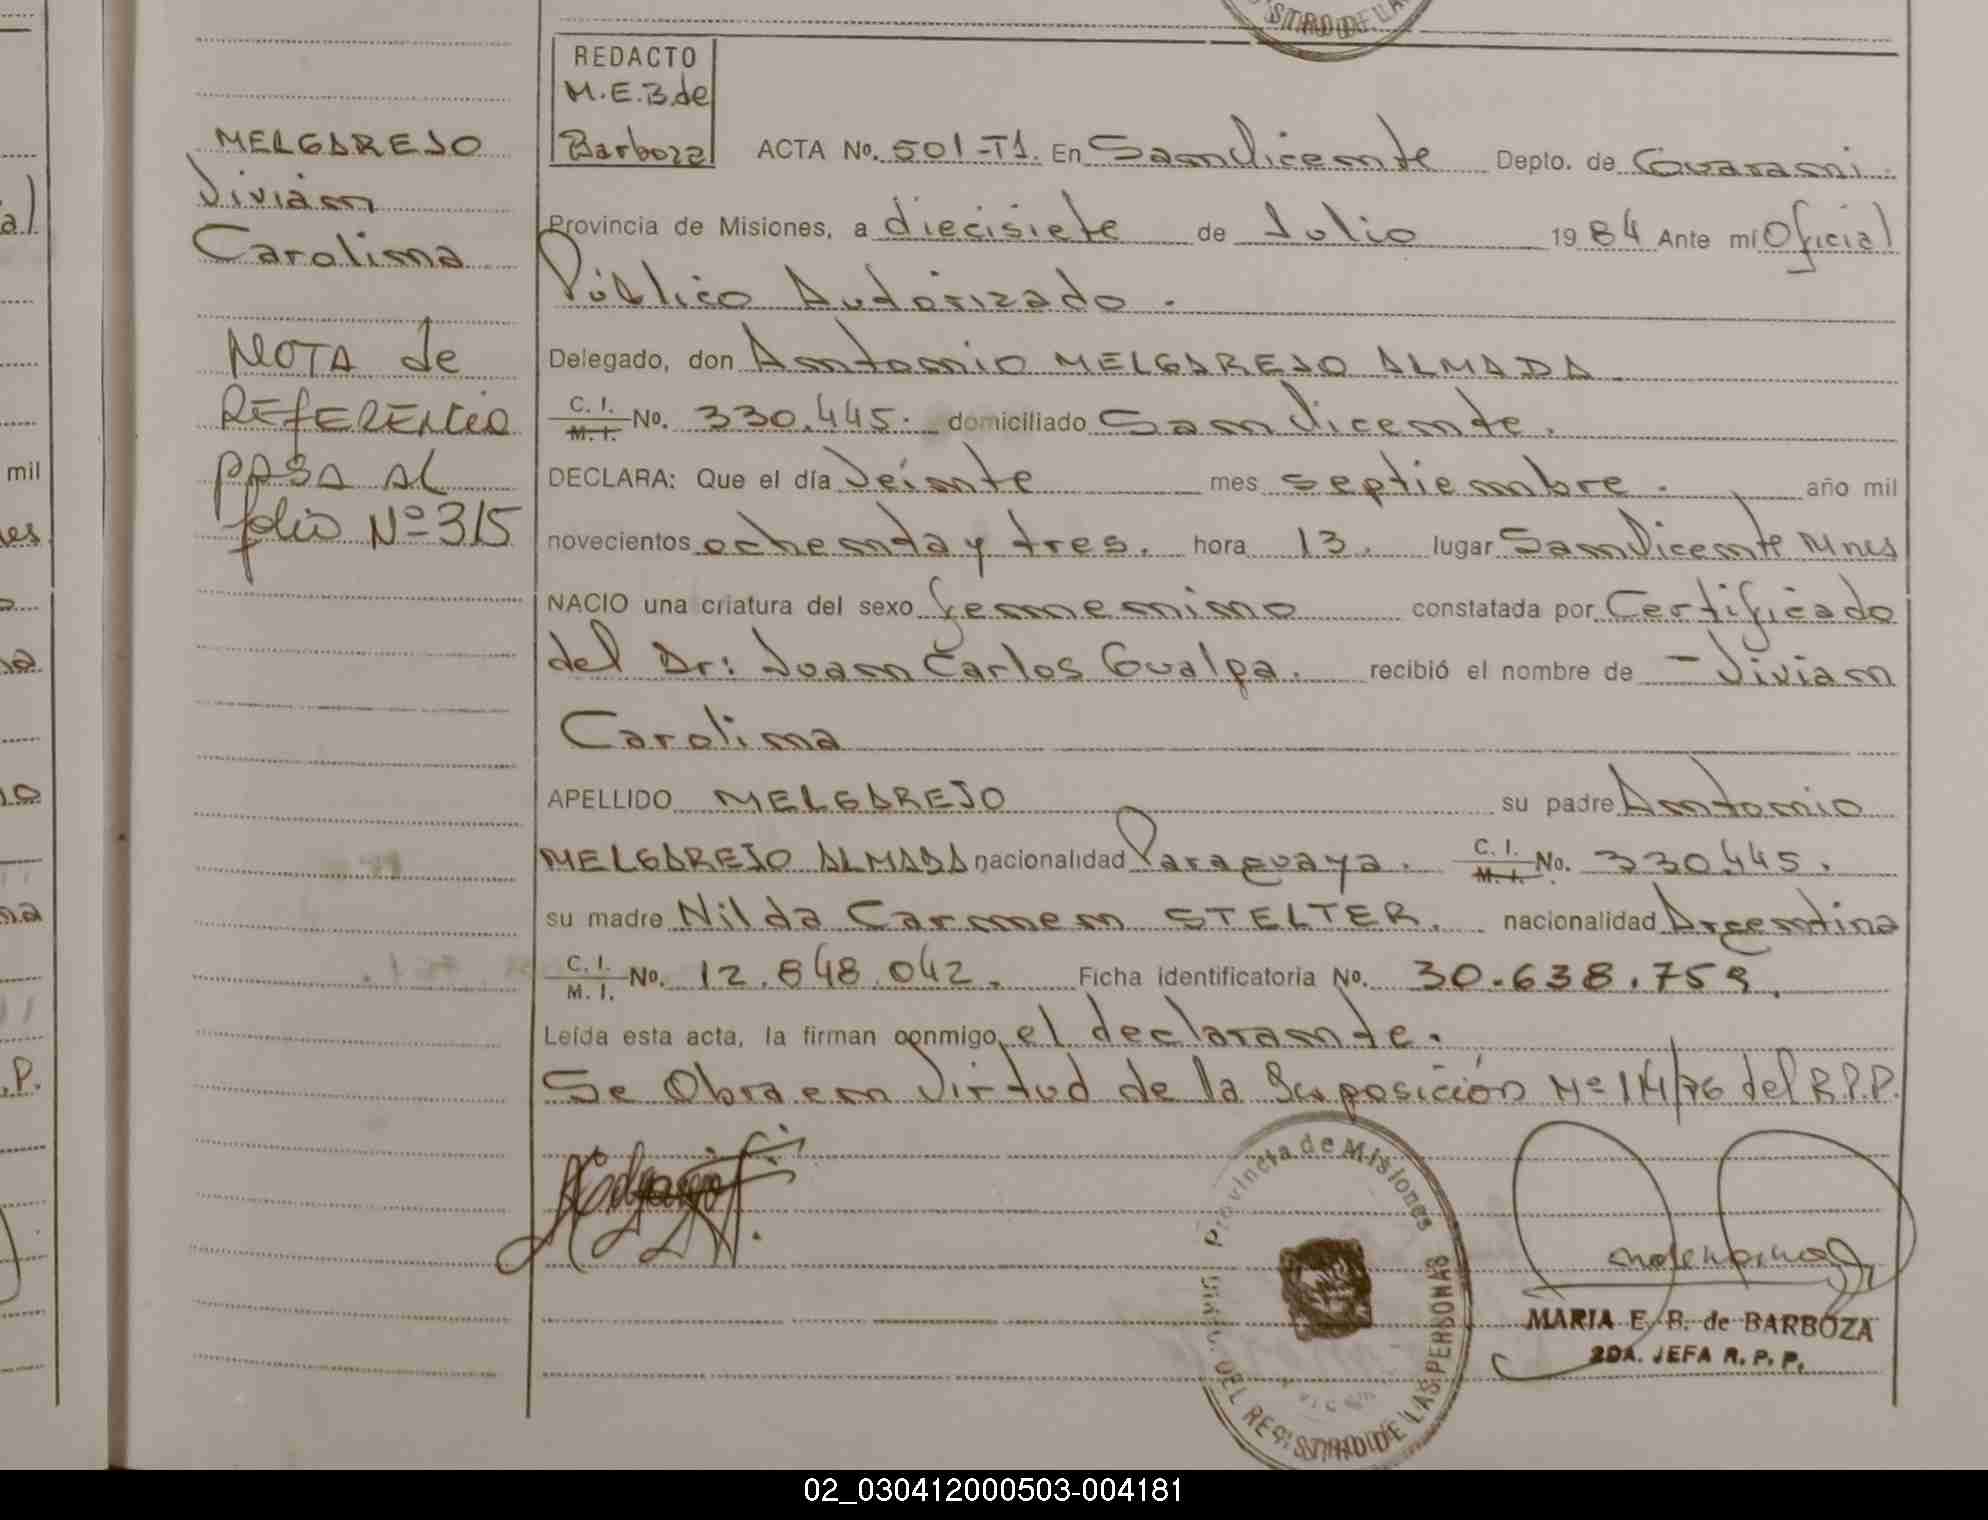 REDACTO
M.E.B. de
Barboza
MELGAREJO
Vivian
Carolina
NOTA de
REFERENCIA
PASA AL
folio Nº 315
ACTA No. 501-T1. En San Vicente Depto. de Guaraní.
Provincia de Misiones, a diecisiete de Julio 1984 Ante mí Oficial
Público Autorizado.
Delegado, don Antonio MELGAREJO ALMADA
C. I. M. I. No. 330.445. domiciliado San Vicente.
DECLARA: Que el día Veinte mes septiembre. año mil
novecientos ochenta y tres. hora 13. lugar San Vicente Mnes
NACIO una criatura del sexo femenino constatada por Certificado
del Dr: Juan Carlos Gualpa. recibió el nombre de - Vivian
Carolina
APELLIDO MELGAREJO su padre Antonio
MELGAREJO ALMADA nacionalidad Paraguaya. C. I. M. I. No. 330.445.
su madre Nilda Carmen STELTER. nacionalidad Argentina
C. I. M. I. No. 12.848.042. Ficha identificatoria No. 30.638.759.
Leída esta acta, la firman conmigo, el declarante.
Se Obra en Virtud de la Disposición Nº 114/76 del R.P.P.
Provincia de Misiones
DEL REGISTRO DE LAS PERSONAS
MARIA E. B. de BARBOZA
2DA. JEFA R. P. P.
mil
02_030412000503-004181